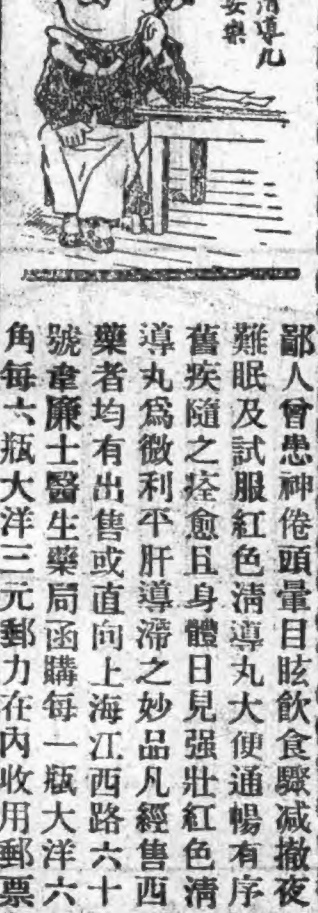 清導丸
安樂
鄙人曾患神倦頭暈目眩飲食驟减撤夜
難眠及試服紅色清導丸大便通暢有序
舊疾隨之痊愈且身體日見强壯紅色清
導丸爲微利平肝導滯之妙品凡經售西
藥者均有出售或直向上海江西路六十
號韋廉士醫生藥局函購每一瓶大洋六
角每六瓶大洋三元郵力在內收用郵票